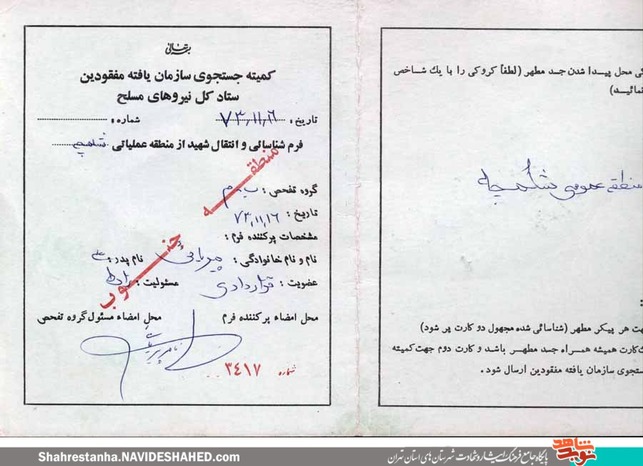 ئی محل پیدا شدن جسد مطهر (لطفاً کروکی را با یك شاخص
نمائید)
منطقه عمومی شلمچه
جهت هر پیکر مطهر (شناسائی شده مجهول دو کارت پر شود)
ك کارت همیشه همراه جسد مطهر باشد و کارت دوم جهت کمیته
ستجوی سازمان یافته مفقودین ارسال شود .
بسمه تعالی
کمیته جستجوی سازمان یافته مفقودین
ستاد کل نیروهای مسلح
تاریخ : ۷۳،۱۱،۱۶ شماره :
فرم شناسائی و انتقال شهید از منطقه عملیاتی شلمچه
منطقه جنوب
گروه تفحص :
تاریخ : ۷۳،۱۱،۱۶
مشخصات پرکننده فرم :
نام و نام خانوادگی : نام پدر : علی
عضویت : قراردادی مسئولیت : رابط
محل امضاء پرکننده فرم محل امضاء مسئول گروه تفحص
شماره ۳۴۱۷
Shahrestanha.NAVIDESHAHED.com
پایگاه جامع فرهنگ ایثار و شهادت شهرستان های استان تهران
نوید شاهد